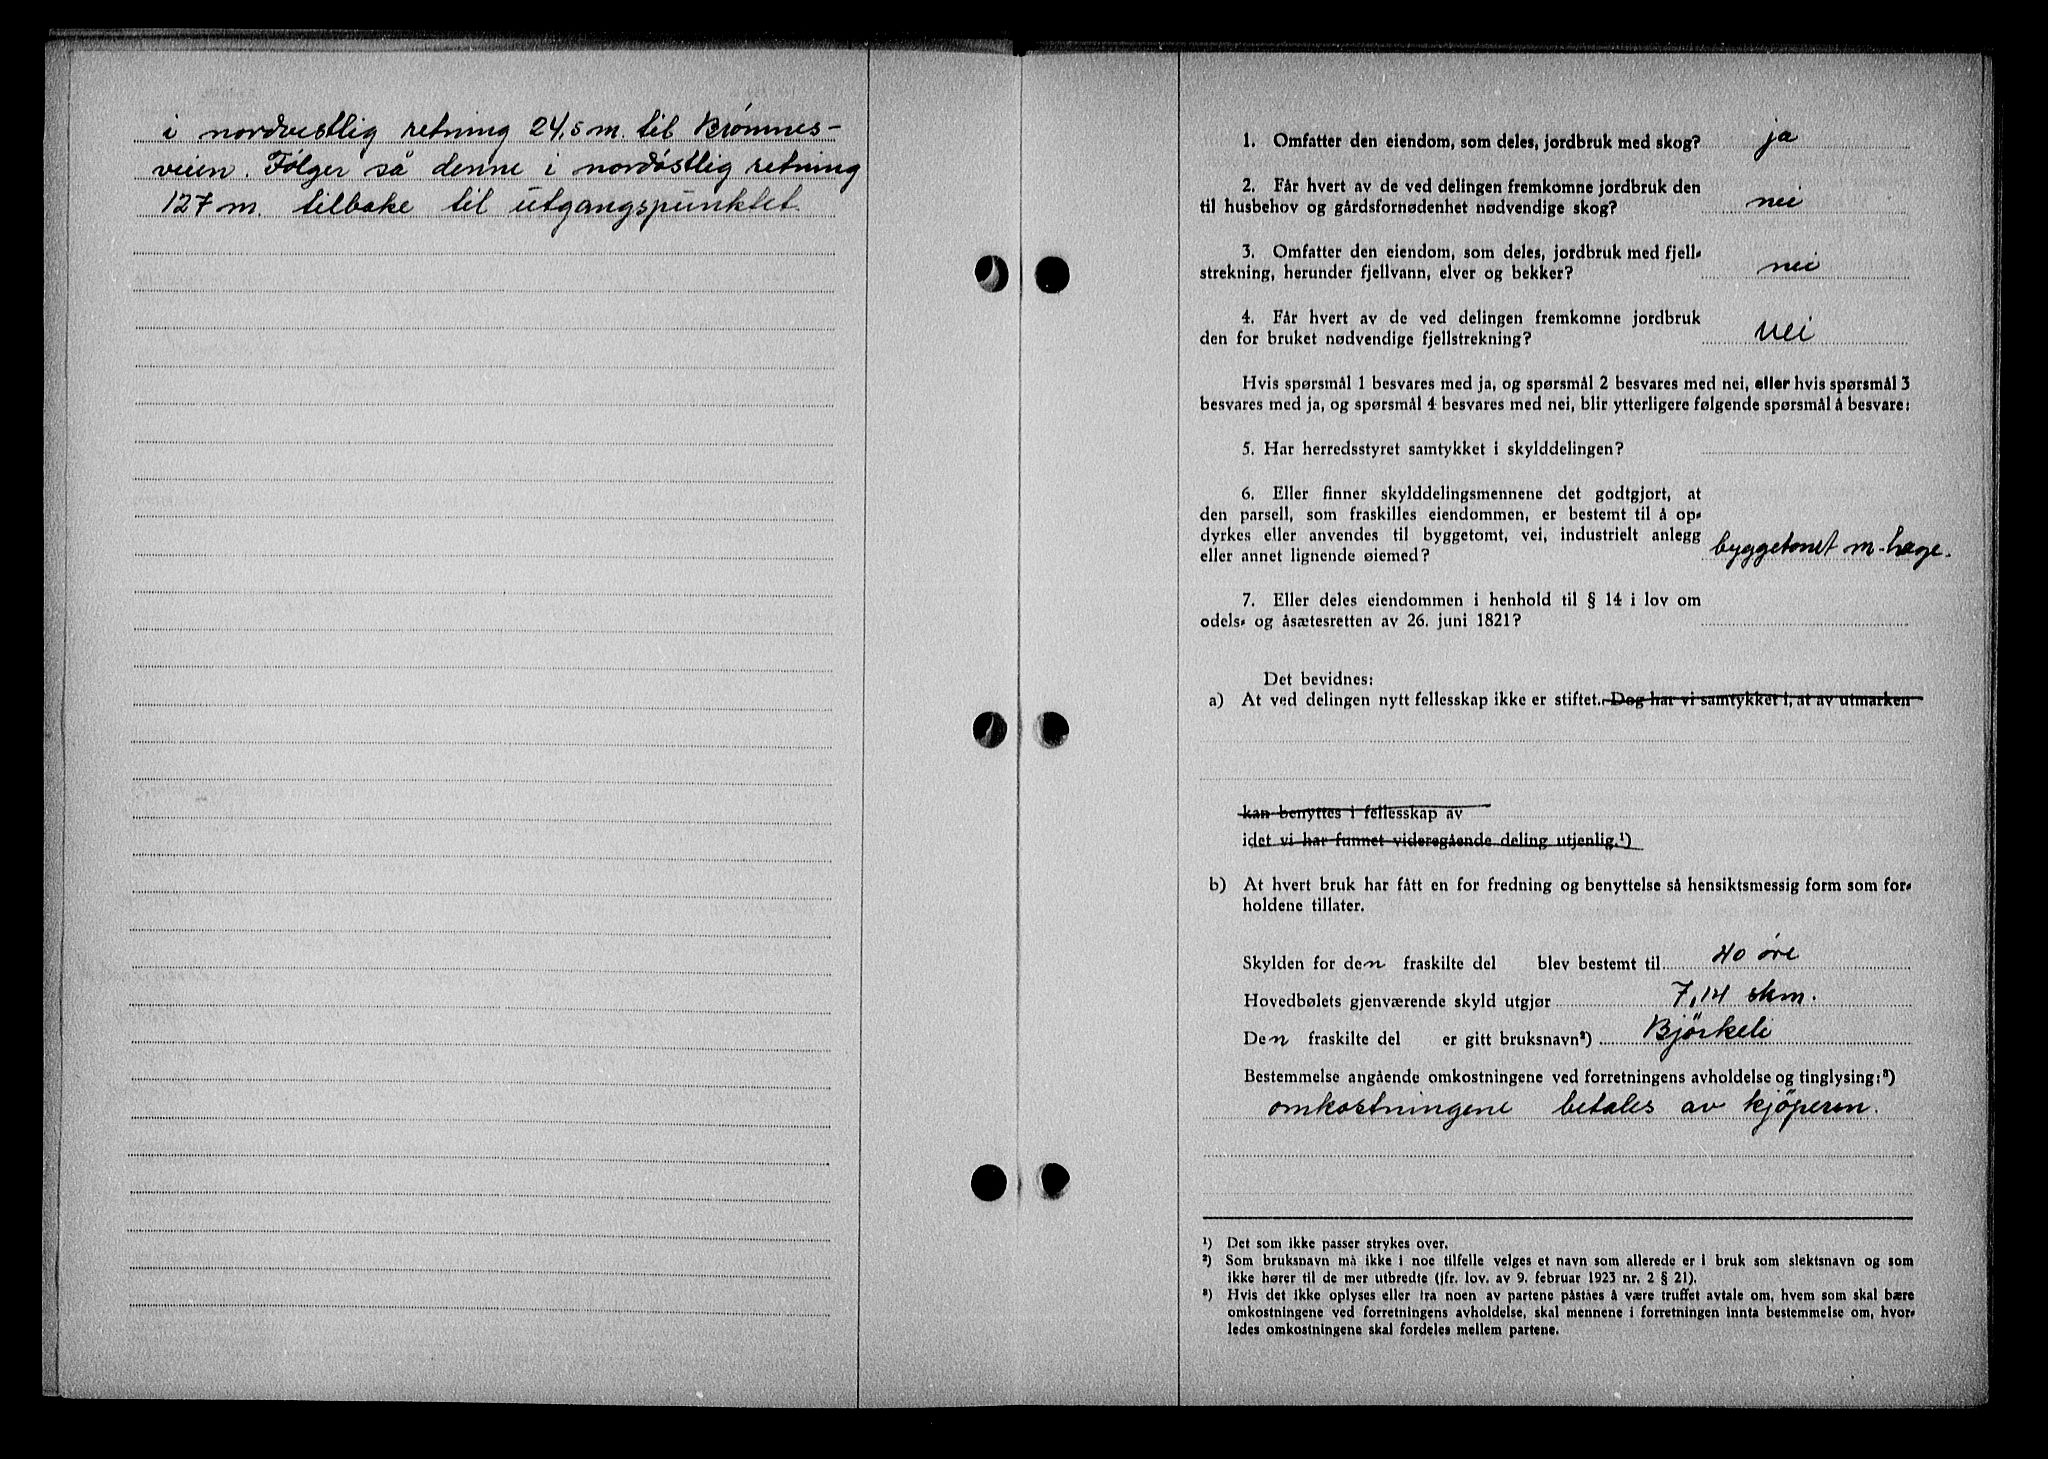 i nordvestlig retning 24,5 m. til Brømnes-
veien. Følger så denne i nordøstlig retning
127 m. tilbake til utgangspunktet.
1. Omfatter den eiendom, som deles, jordbruk med skog? ja
2. Får hvert av de ved delingen fremkomne jordbruk den
til husbehov og gårdsfornødenhet nødvendige skog? nei
3. Omfatter den eiendom, som deles, jordbruk med fjell-
strekning, herunder fjellvann, elver og bekker? nei
4. Får hvert av de ved delingen fremkomne jordbruk
den for bruket nødvendige fjellstrekning? nei
Hvis spørsmål 1 besvares med ja, og spørsmål 2 besvares med nei, eller hvis spørsmål 3
besvares med ja, og spørsmål 4 besvares med nei, blir ytterligere følgende spørsmål å besvare:
5. Har herredsstyret samtykket i skylddelingen?
6. Eller finner skylddelingsmennene det godtgjort, at
den parsell, som fraskilles eiendommen, er bestemt til å op-
dyrkes eller anvendes til byggetomt, vei, industrielt anlegg
eller annet lignende øiemed? byggetomt m. hage.
7. Eller deles eiendommen i henhold til § 14 i lov om
odels- og åsætesretten av 26. juni 1821?
Det bevidnes:
a) At ved delingen nytt fellesskap ikke er stiftet. Dog har vi samtykket i, at av utmarken
kan benyttes i fellesskap av
idet vi har funnet videregående deling utjenlig.¹)
b) At hvert bruk har fått en for fredning og benyttelse så hensiktsmessig form som for-
holdene tillater.
Skylden for den fraskilte del blev bestemt til 40 øre
Hovedbølets gjenværende skyld utgjør 7,14 skm.
Den fraskilte del er gitt bruksnavn²) Bjørkeli
Bestemmelse angående omkostningene ved forretningens avholdelse og tinglysing:³)
omkostningene betales av kjøperen.
¹) Det som ikke passer strykes over.
²) Som bruksnavn må ikke i noe tilfelle velges et navn som allerede er i bruk som slektsnavn og som
ikke hører til de mer utbredte (jfr. lov. av 9. februar 1923 nr. 2 § 21).
³) Hvis det ikke oplyses eller fra noen av partene påståes å være truffet avtale om, hvem som skal bære
omkostningene ved forretningens avholdelse, skal mennene i forretningen innta bestemmelse om, hvor-
ledes omkostningene skal fordeles mellem partene.